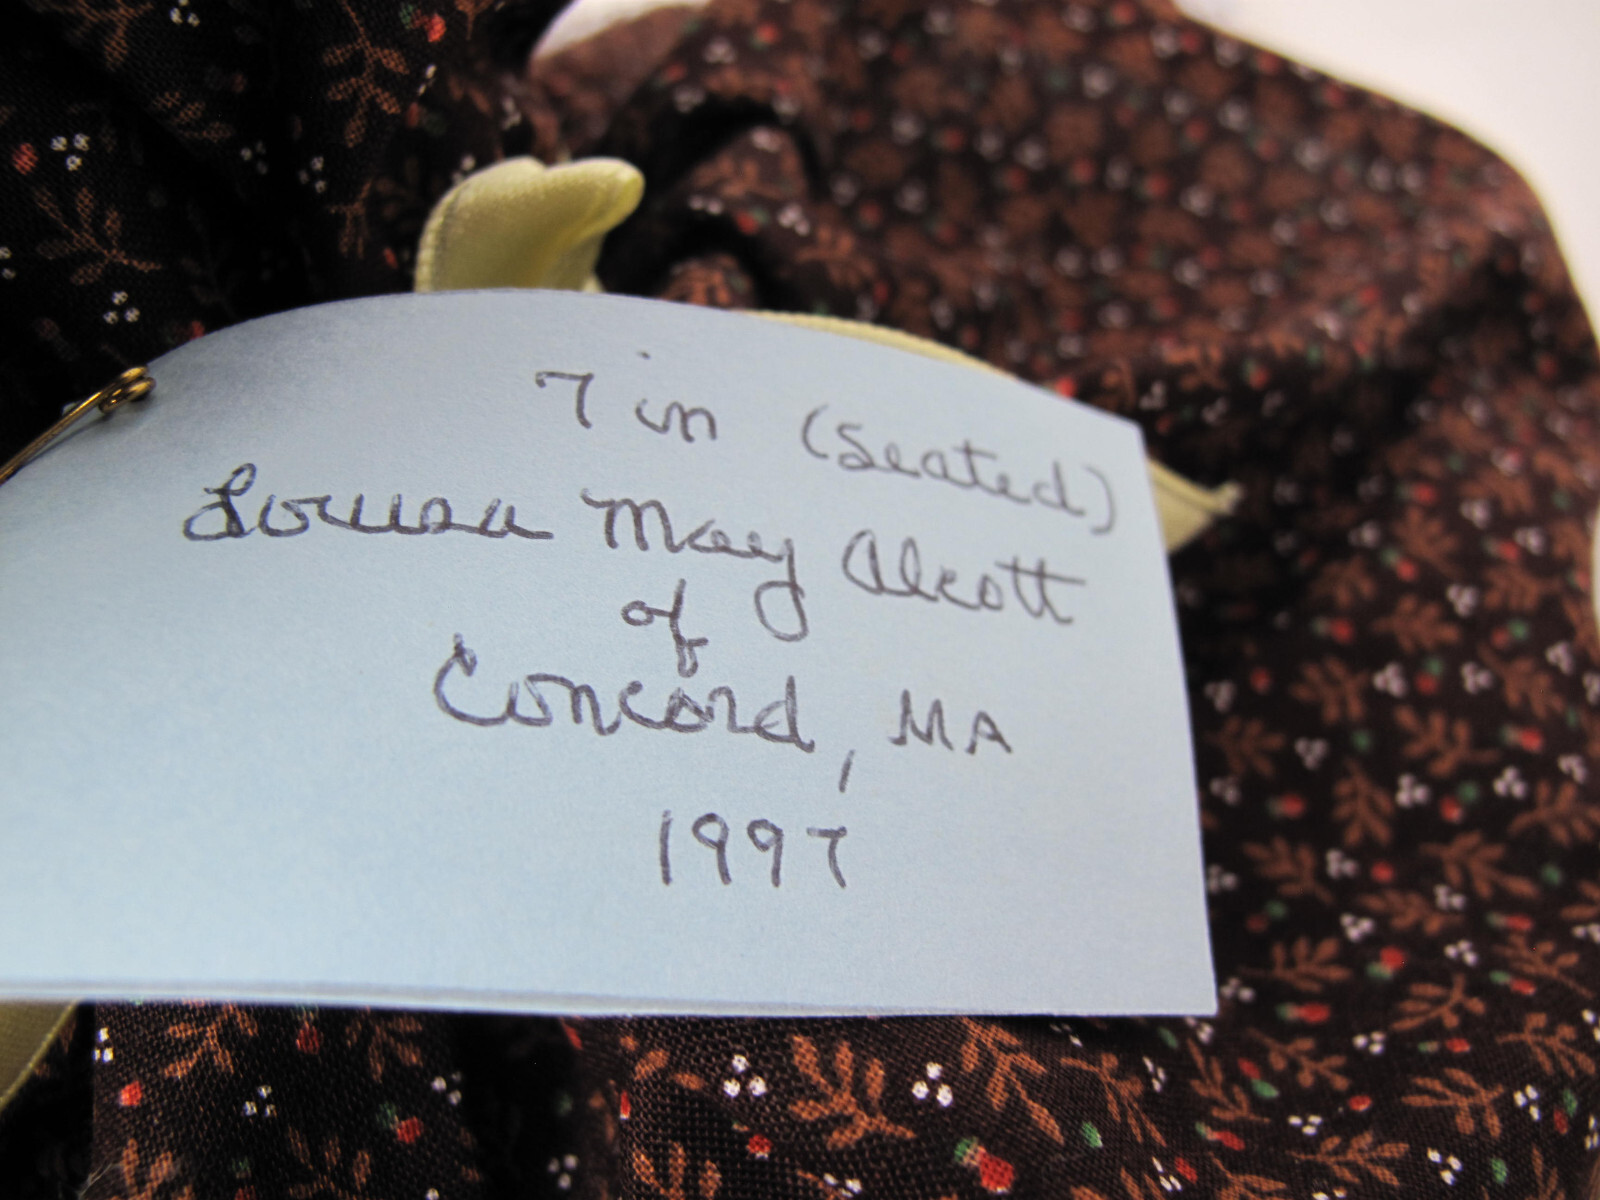 7 in (seated)
Louisa May Alcott
of
Concord, MA
1997